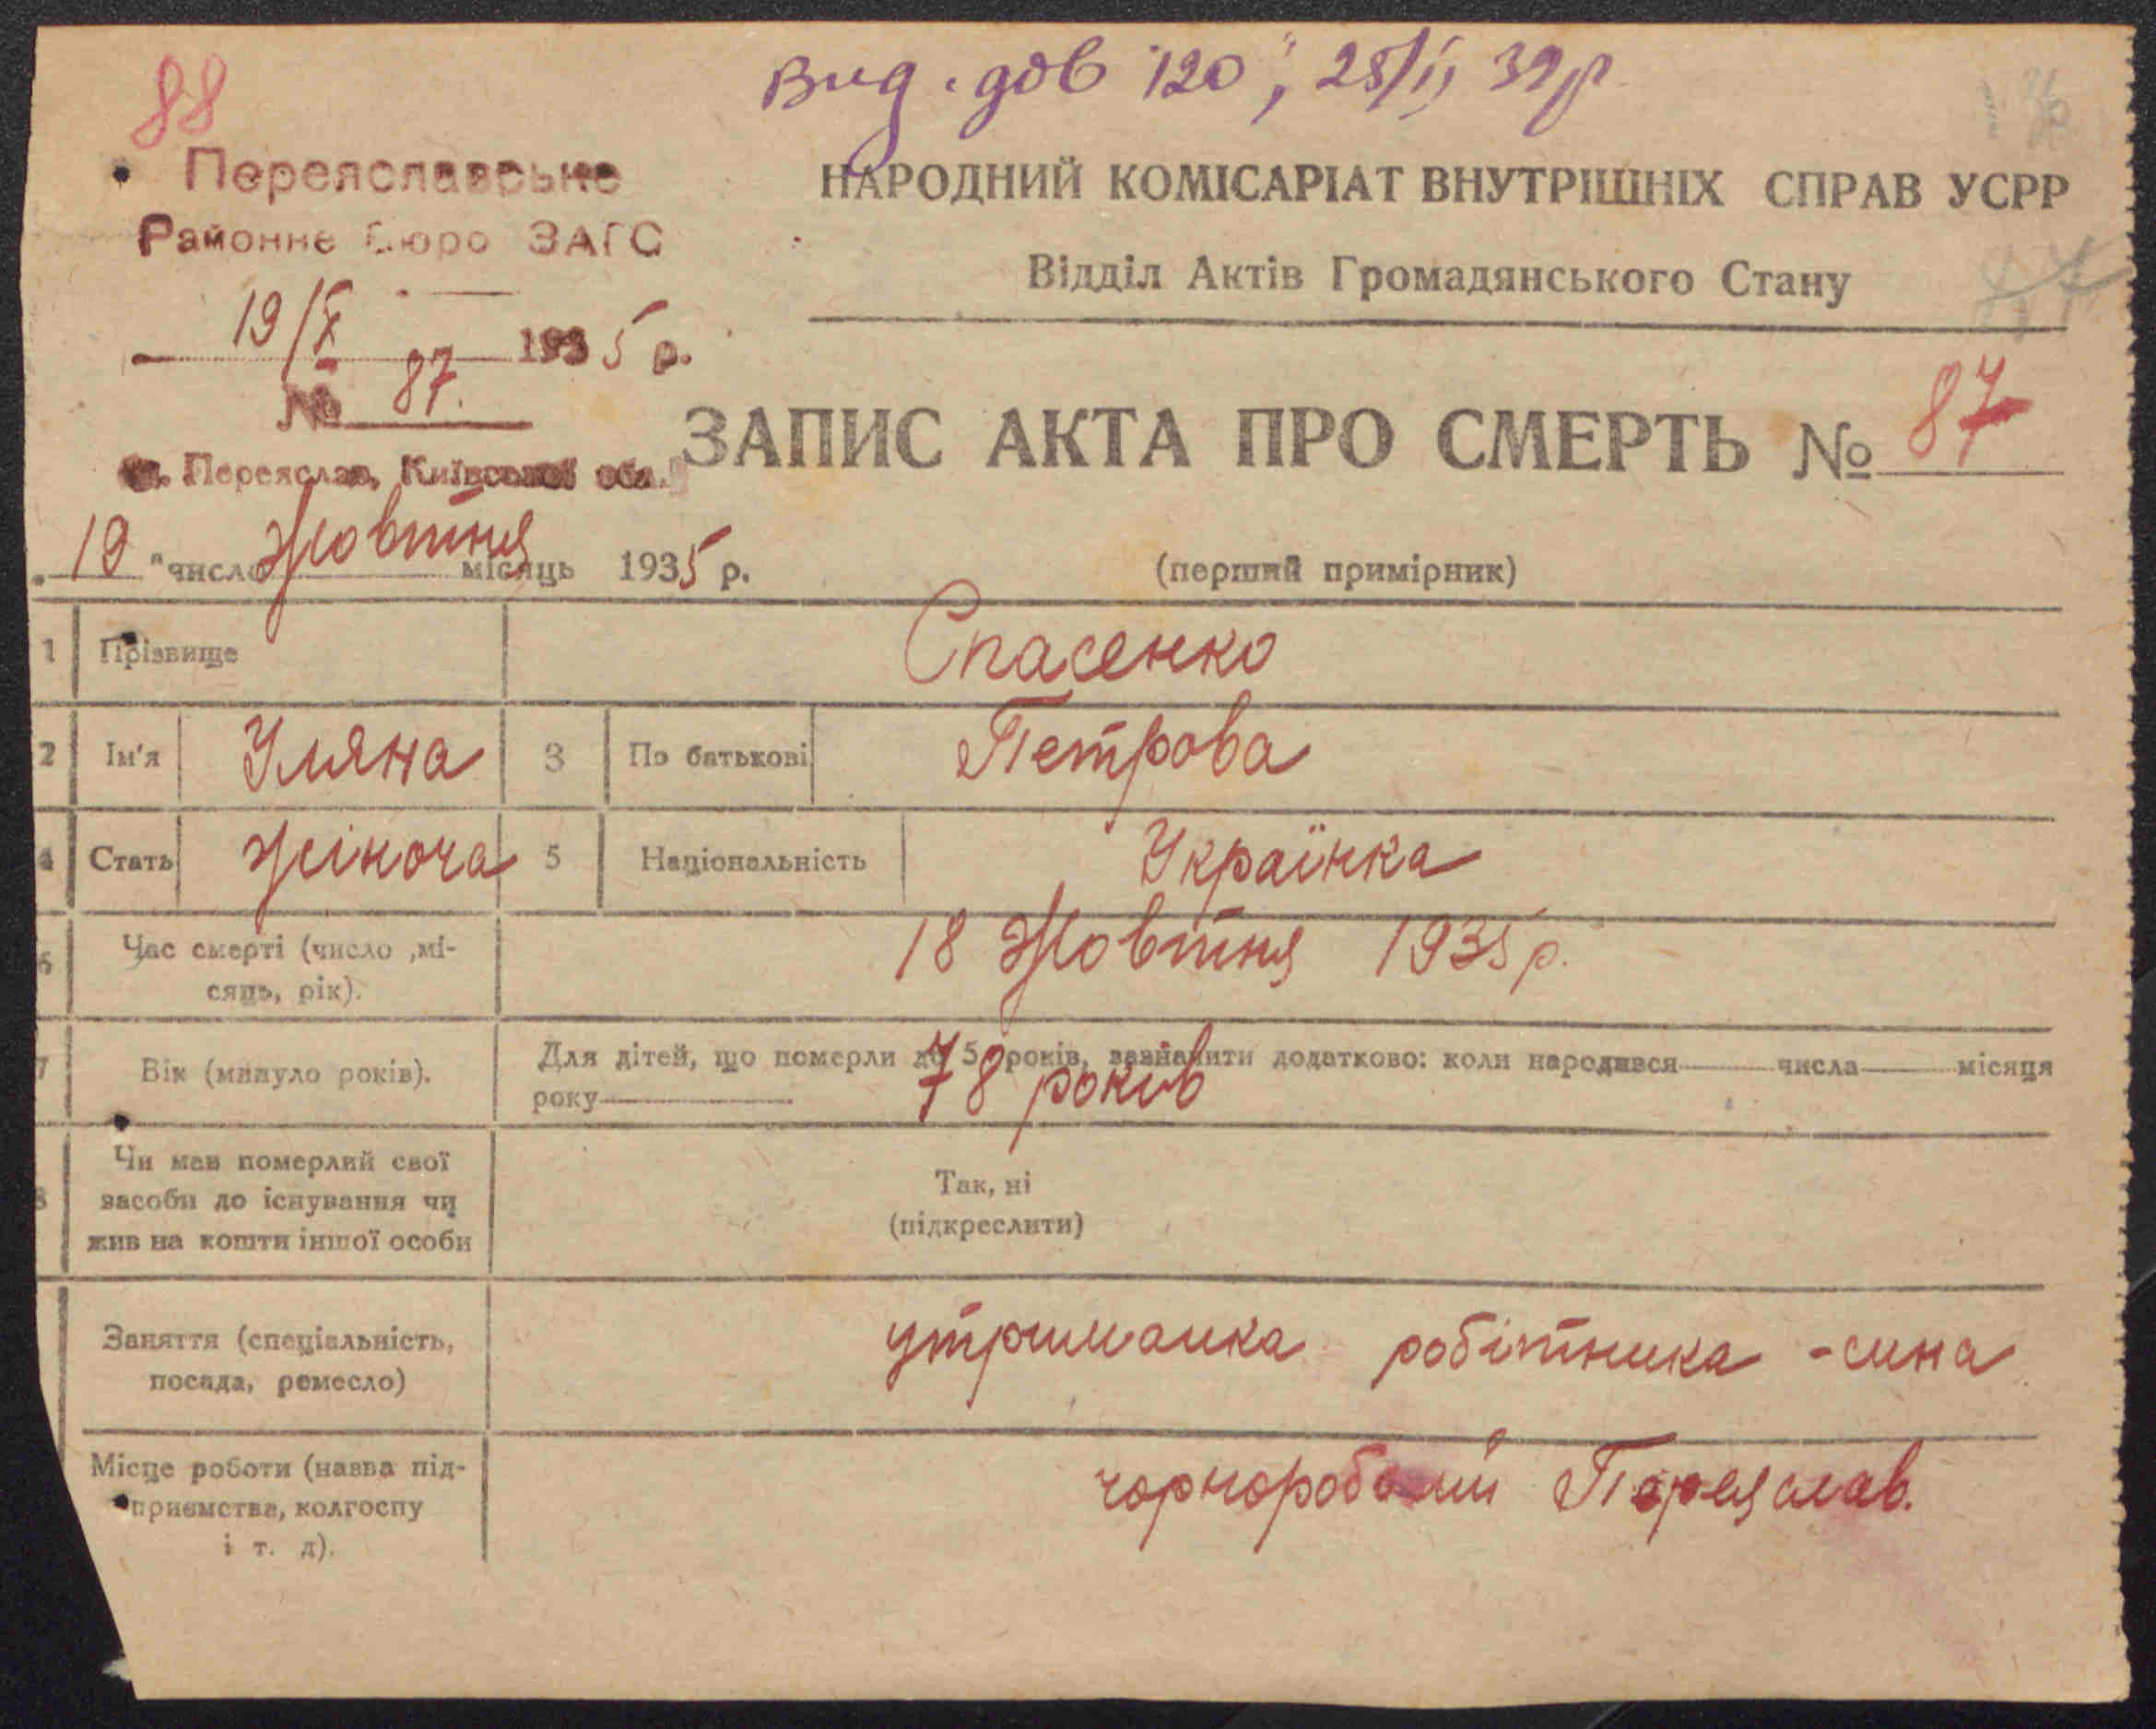 88
Вид. дов "120", 25/II 39 р
Переяславське
Районне бюро ЗАГС
19/X 1935 р.
№ 87.
м. Переяслав, Київської обл.
НАРОДНИЙ КОМІСАРІАТ ВНУТРІШНІХ СПРАВ УСРР
Відділ Актів Громадянського Стану
ЗАПИС АКТА ПРО СМЕРТЬ № 87
„19“ число Жовтня місяць 1935 р.
(перший примірник)
1 Прізвище Спасенко
2 Ім'я Уляна 3 По батькові Петрова
4 Стать жіноча 5 Національність Українка
6 Час смерті (число ,мі-
сяць, рік). 18 Жовтня 1935 р.
7 Вік (минуло років). Для дітей, що померли до 5 років, зазначити додатково: коли народився числа місяця
року 78 років
8 Чи мав померлий свої
засоби до існування чи
жив на кошти іншої особи
Так, ні
(підкреслити)
Заняття (спеціальність,
посада, ремесло)
утриманка робітника - сина
Місце роботи (назва під-
приємства, колгоспу
і т. д).
чорноробочий Переяслав.